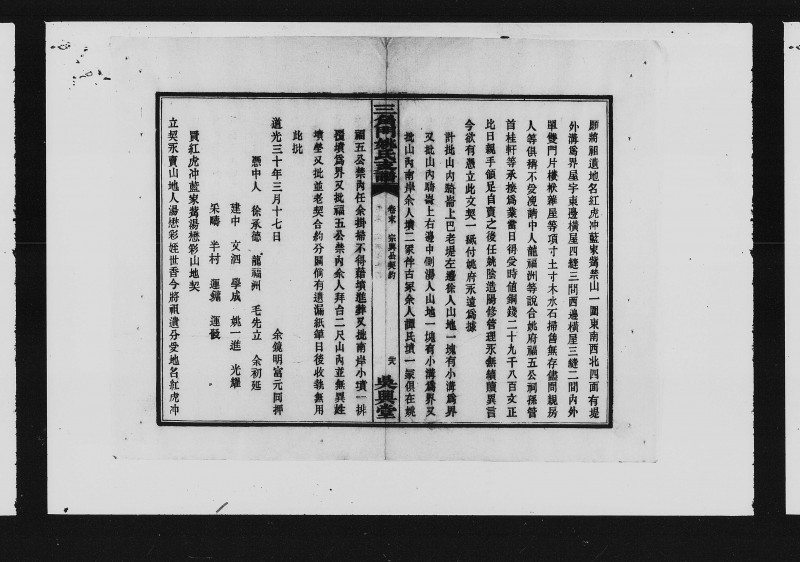 願將祖遺地名紅虎冲藍家鴌禁山一圍東南西北四面有堤
外溝爲界屋宇東邊橫屋四縫三間西邊橫屋三縫二間內外
單雙門片樓棯雜屋等項寸土寸木水石掃售無存儘問親房
人等俱稱不受凂請中人龍福洲等說合姚府福五公祠孫管
首桂軒等承接爲業當日得受時値銅錢二十九千八百文正
比日親手領足自賣之後任姚陰造陽修管理永無續贖異言
今欲有憑立此文契一紙付姚府永遠爲據
計批山內騎崙上巴老堤左邊徐人山地一塊有小溝爲界
又批山內騎崙上右邊中倒湯人山地一塊有小溝爲界又
批山內南岸余人墳二冢伴古冢余人譚氏墳一冢俱在姚
三角閘姚氏支譜
卷末 宗興品契約
吳興堂
福五公禁內任余掛掃不得藉墳進葬又批南岸小墳一排
擢墳爲界又批福五公禁內余人拜台二尺山內並無異姓
墳塋又批並老契合約分關倘有遺漏紙筆日後收執無用
此批
道光三十年三月十七日 余鏡明富元同押
憑中人 徐承德 龍福洲 毛先立 余初延
建中 文泗 學成 姚一進 光耀
采疇 半村 運鏽
買紅虎冲藍家鴌湯懋彩山地契
立契永賣山地人湯懋彩姪世香今將祖遺分受地名紅虎冲